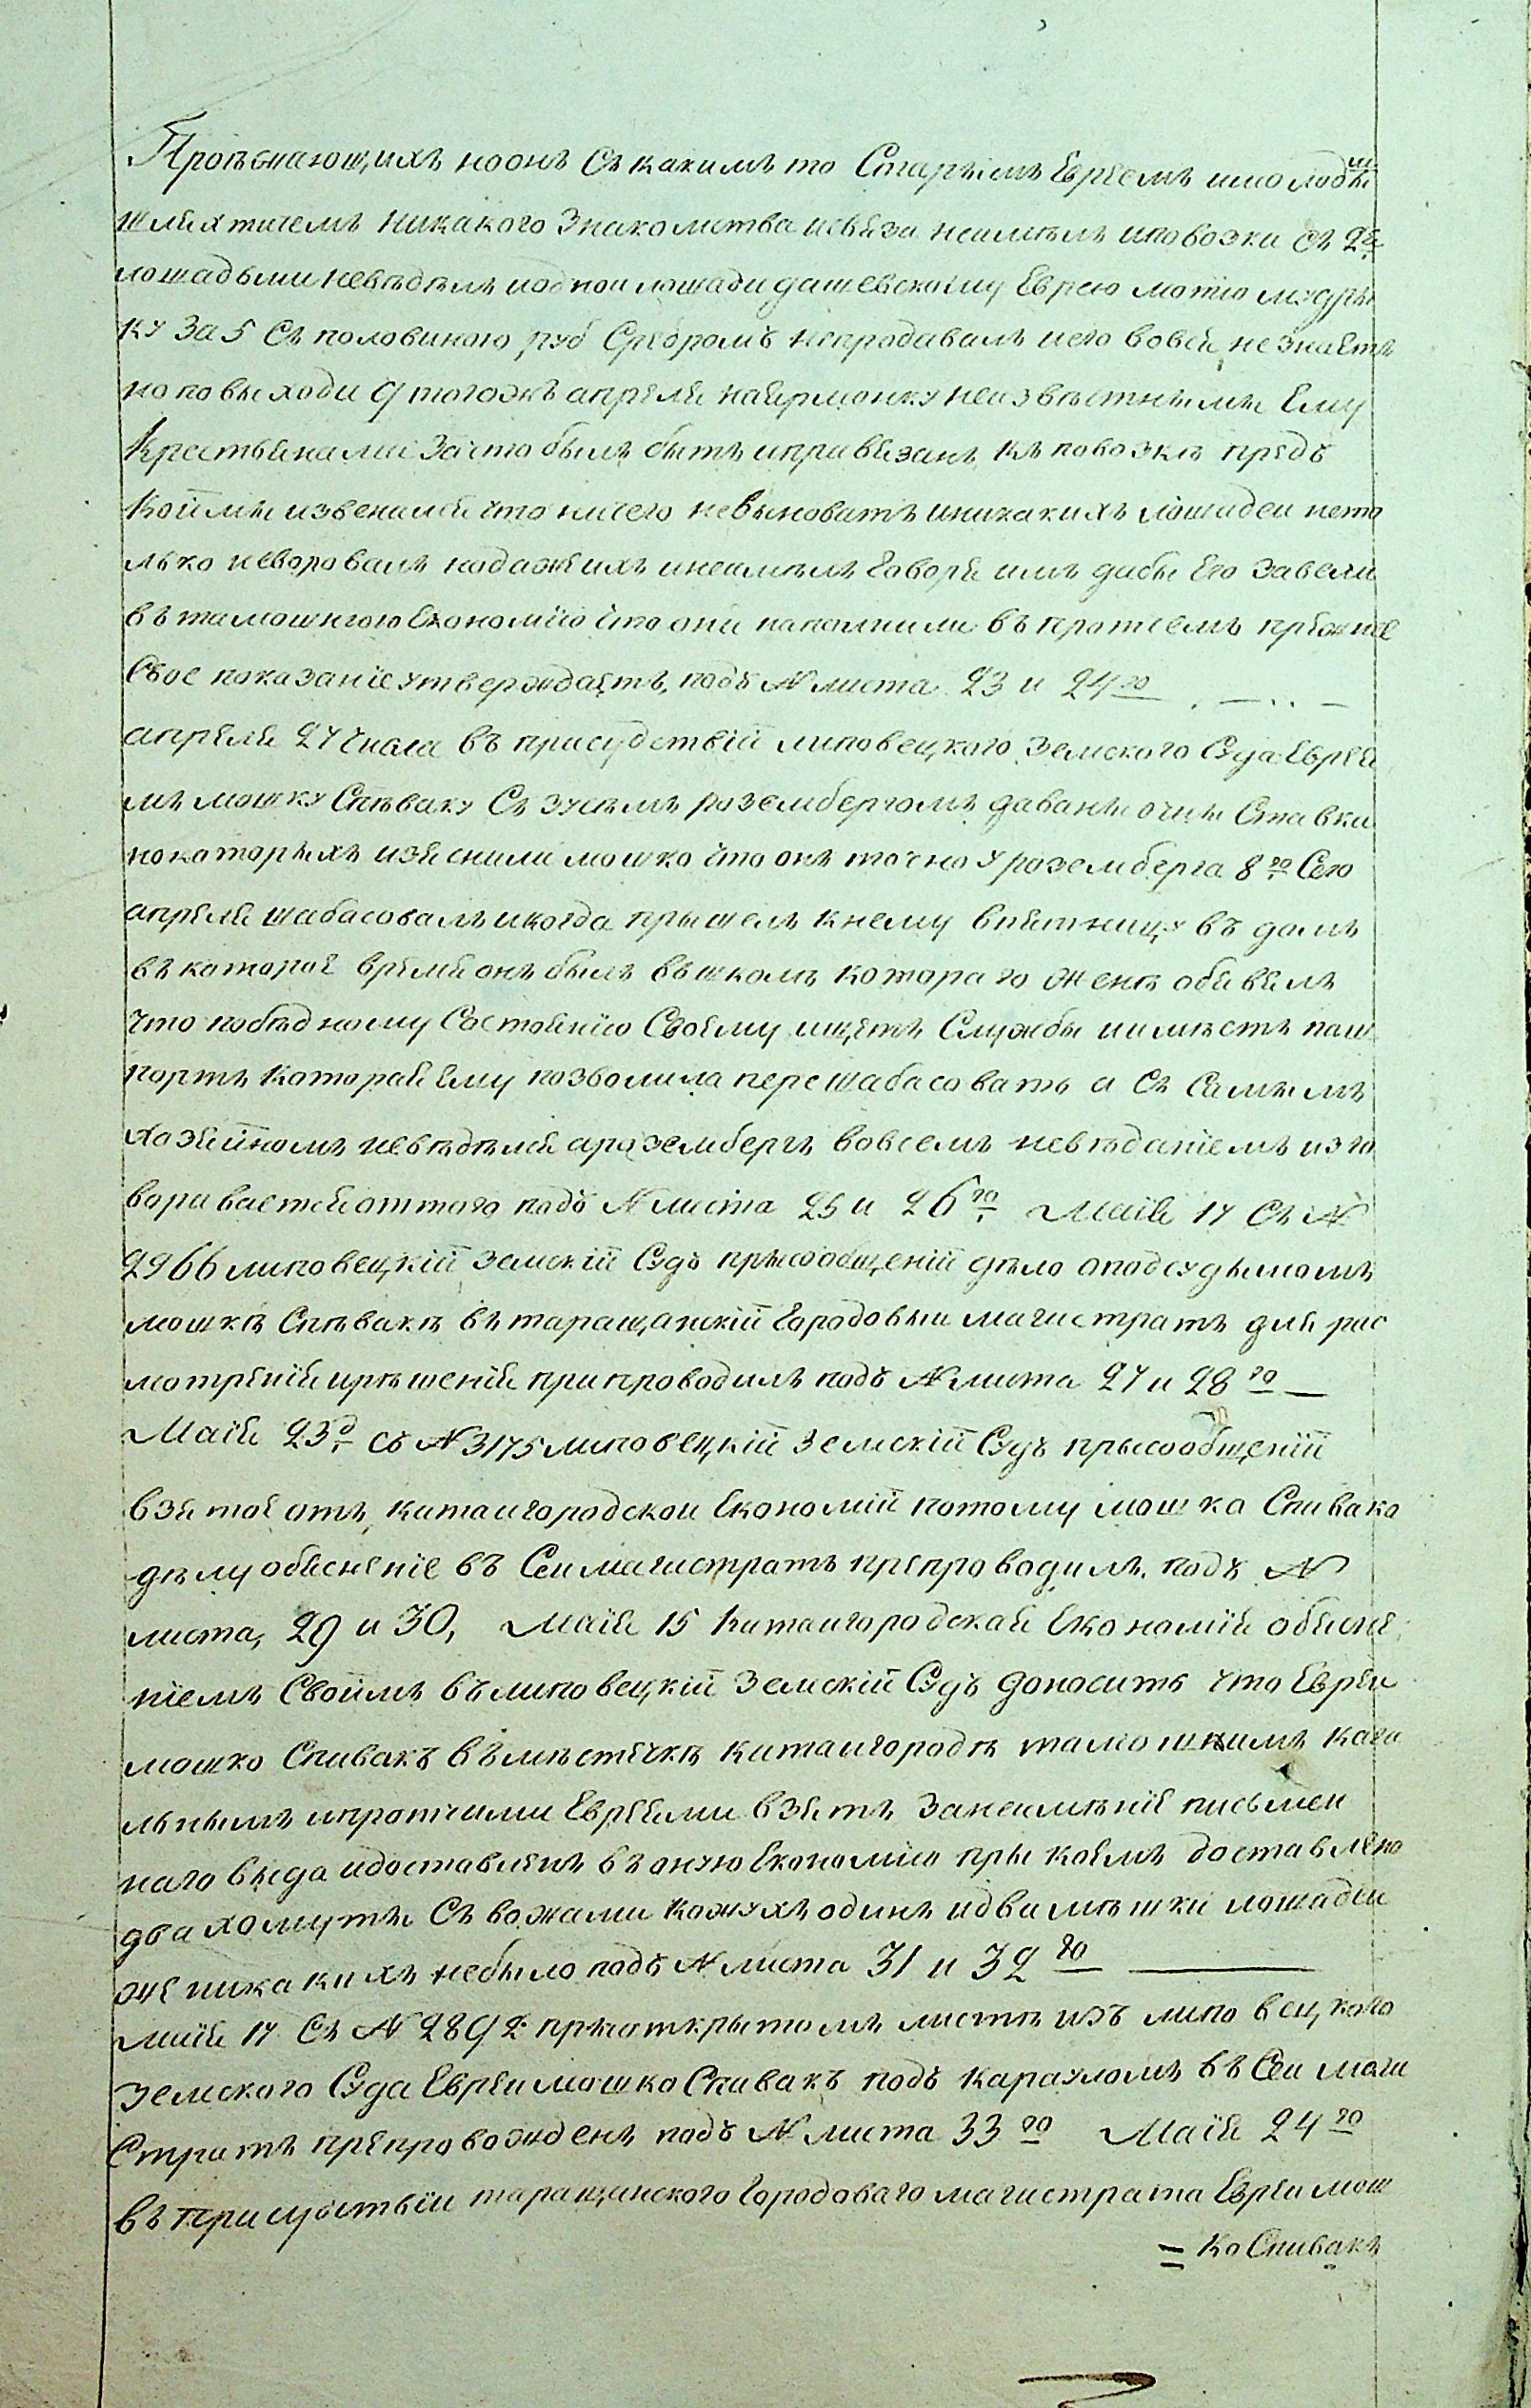 Произнающихъ но онъ съ какимъ то старымъ Евреемъ имолодымъ
шляхтичемъ никакого знакомства исвязи неимелъ иповозки съ 2мя
лошадьми невѣдѣлъ иодной лошади дашевскому Еврею мотю мудры
ку за 5 съ половиною руб Сребромъ непродавалъ иего вовся незнаетъ
но повыходи 9 тогожъ апреля наярмонку неизвѣстными Ему
Крестьянами зачто былъ бытъ иправязанъ къ повозкѣ предъ
Коймы извенялся что ничего невыноватъ иникакихъ лошадей нето
лько неворовалъ нодажеихъ инеимелъ Говоря имъ дабы Его завели
въ тамошнюю Економїю что они наполнили въ протчемъ прежнее
Свое показанїе утверждаетъ, подъ № листа 23 и 24го
апреля 27 числа въ присудствїй липовецкого земского Суда Еврея
мъ мошку Спѣваку Съ зусемъ розембергомъ даваны очны Ставки
покоторыхъ изяснили мошко что онъ точно у роземберга 8го Сего
апреля шабасовалъ икогда прышелъ кнему впятницу въ домъ
въ которое время онъ былъ вшколѣ которого женѣ обявялъ
что побѣдному Состоянїю Своему ищетъ Службы иимѣетъ паш
портъ которая Ему позволила перешабасовать а съ Самымъ
хозяйномъ невѣдѣлся арозембергъ вовсемъ невѣданїемъ изго
воривается оттого подъ № листа 25 и 26го Маїя 17 съ №
2966 липовецкїй земскїй Судъ прысообщенїй дѣло оподсудымомъ
мошкѣ Спѣвакѣ въ таращанскїй Городовый магистратъ для рас
мотренїя ирѣшенїя припроводилъ подъ № листа 27 и 28го
Маїя 23д съ № 3175 липовецкїй Земскїй Судъ прысообщенїй
взятое отъ китайгородской Економїй потому мошка Спивака
дѣлу обяснение въ Сей магистратъ препроводилъ подъ №
листа, 29 и 30, Маїя 15 Китайгородская Економїя обясне
нїемъ Своймъ въ липовецкїй Земскїй Судъ доноситъ что Еврей
мошко Спивакъ въ мѣстечкѣ китайгородѣ тамошнимъ кага
льнымъ ипротчими Евреями взятъ занеимѣнїе письмен
наго выда идоставленъ въ оную Економїю пры коемъ доставлено
два хомуты Съ вожами кожухъ одинъ идва мѣшки лошадей
же никакихъ небыло подъ № листа 31 и 32го
маїя 17 Съ № 2892 прыоткрытомъ листѣ изъ липовецкого
земского Суда Еврей мошко Спивакъ подъ карауломъ въ Сей маги
Стратъ препровожденъ подъ № листа 33го Маїя 24го
въ присуствїи таращанского Городоваго магистрата Еврей мош
= ко Спивакъ